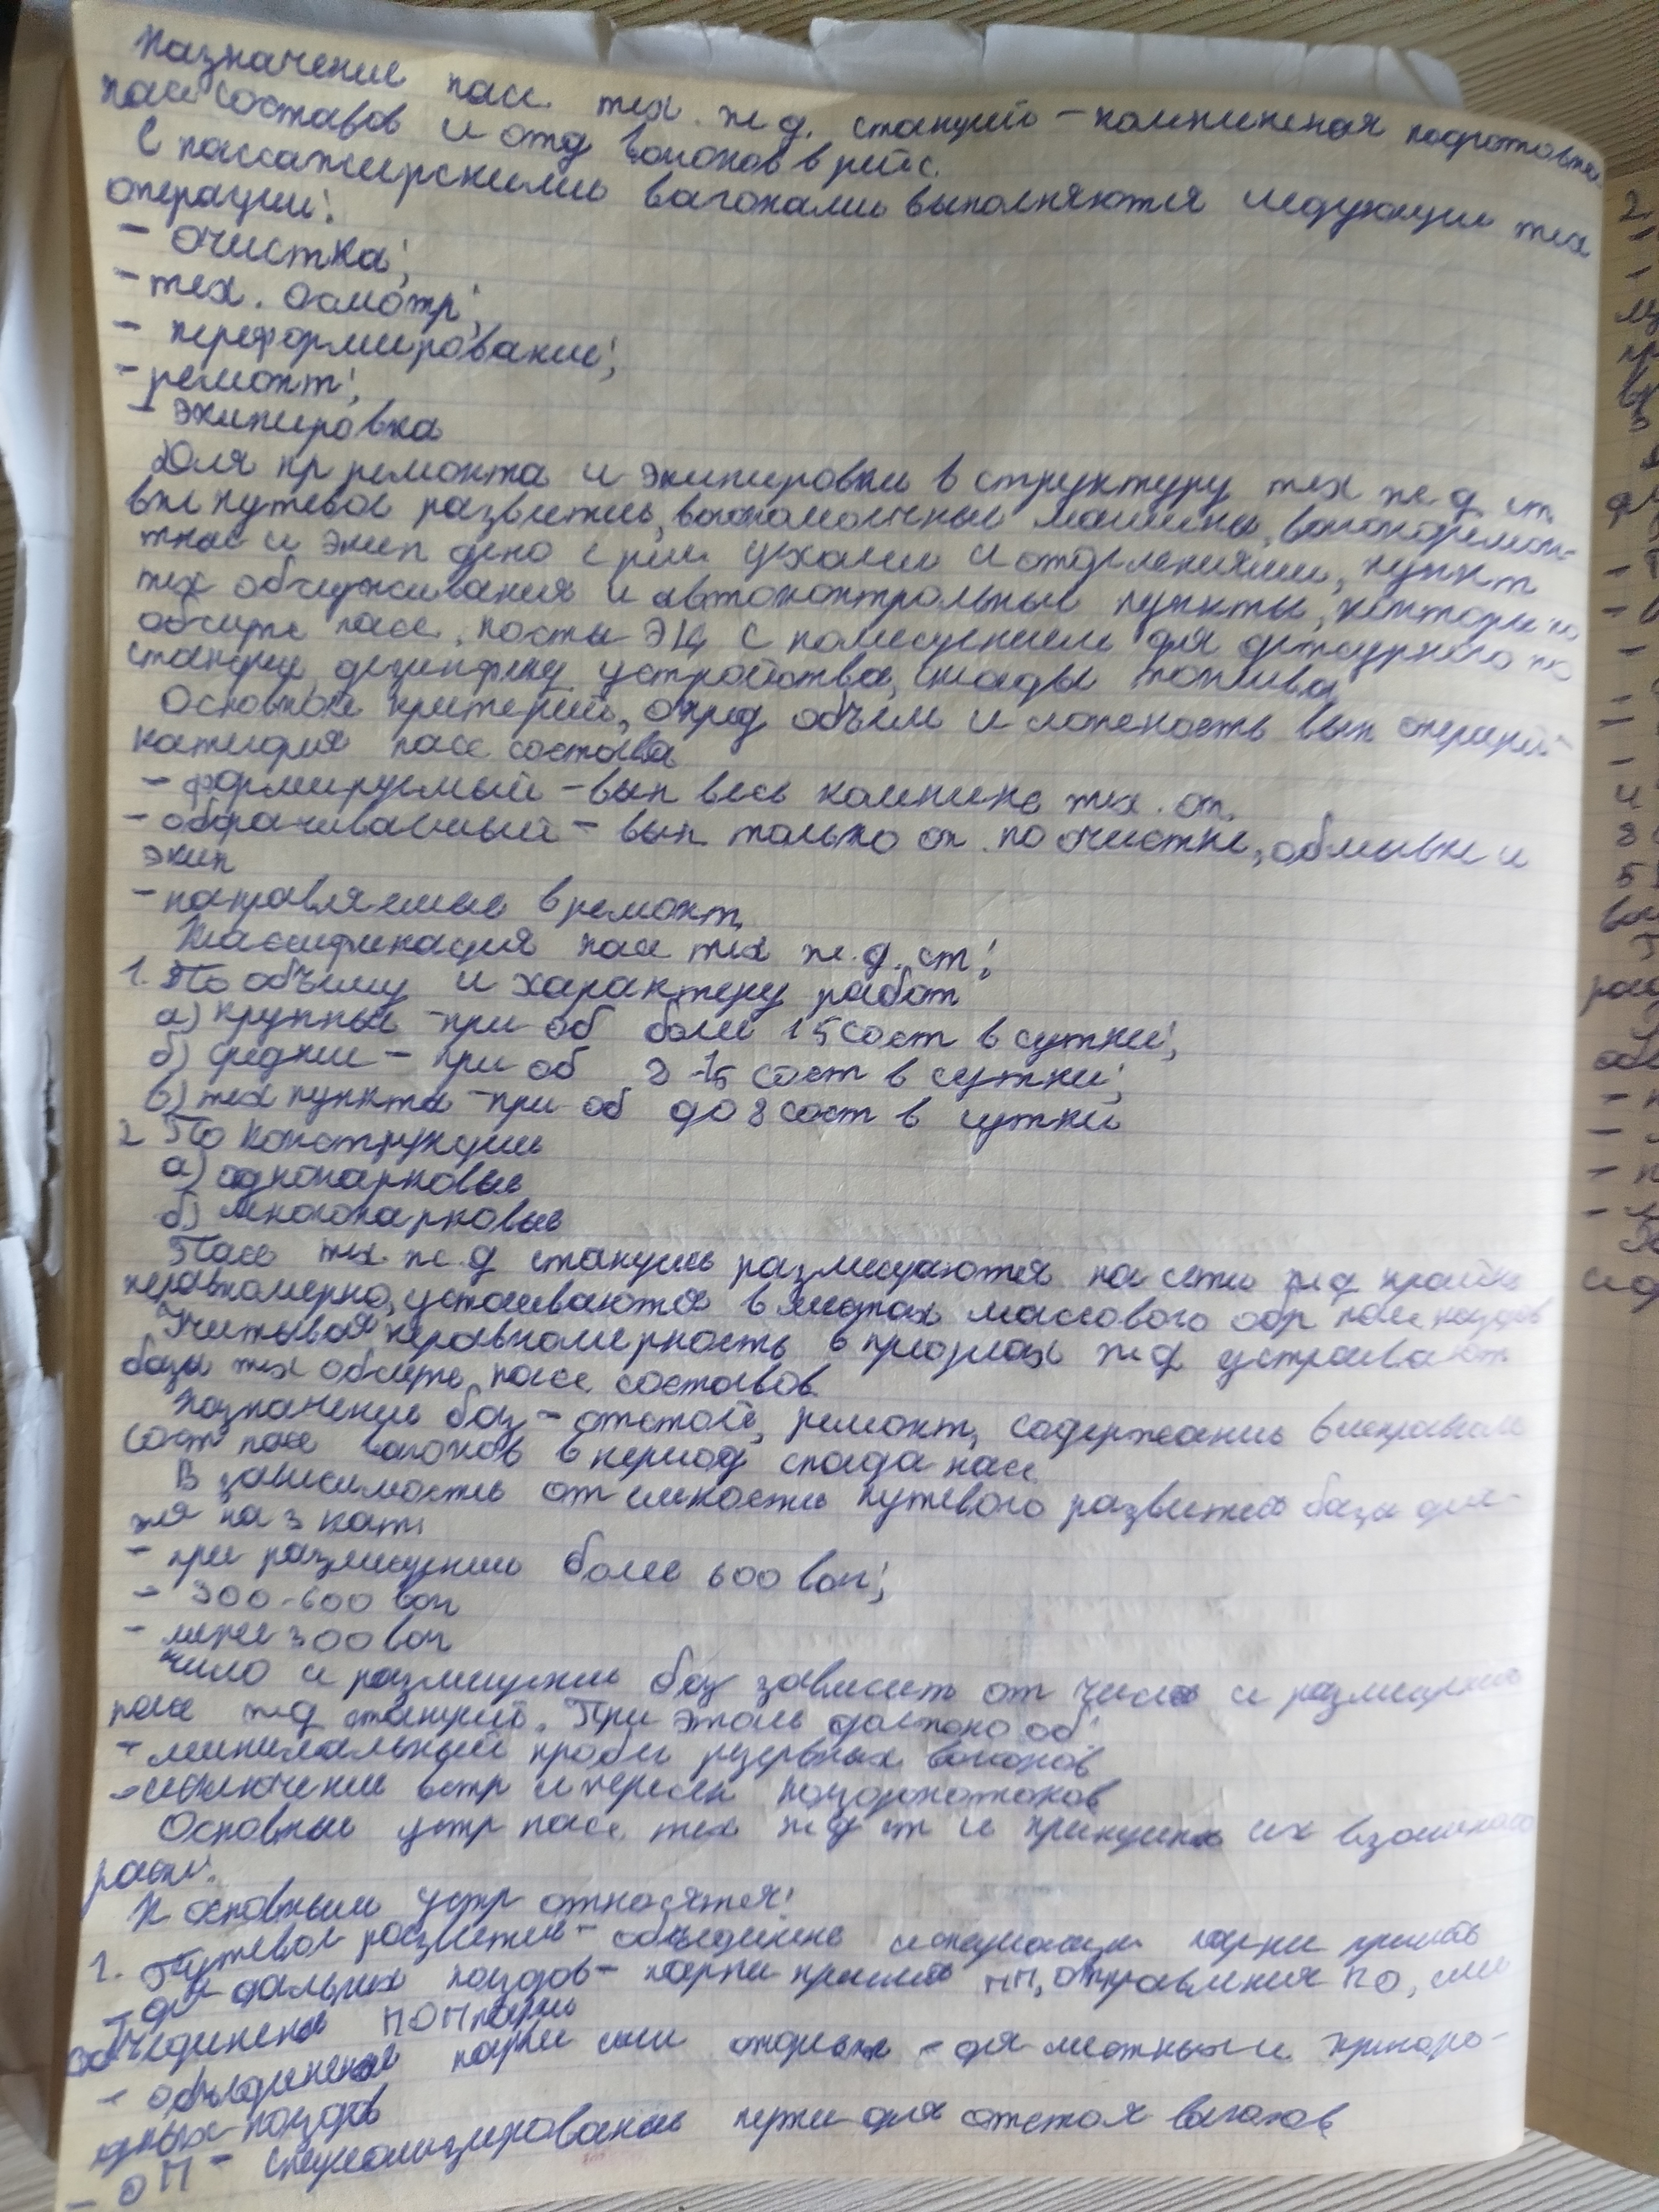 Назначение пасс. тех. ж.д. станций – комплексная подготовка
пасс составов и отд вагонов в рейс.
С пассажирскими вагонами выполняются следующие тех
операции:
- очистка;
- тех. осмотр;
- переформирование;
- ремонт;
- экипировка
Для пр ремонта и экипировки в структуру тех ж.д. ст.
вкл путевое развитие, вагономоечные машины, вагоноремон-
тные и экип депо с рем цехами и отделениями, пункт
тех обслуживания и автоконтрольные пункты, конторы по
обслуж пасс, посты ЭЦ с помещением для дежурного по
станции, дезинфекц устройства, склады топлива
Основной критерий, опред объём и сложность вып операций
категория пасс состава
- формируемый – вып весь комплекс тех. оп.
- оборачиваемый – вып только оп. по очистке, обмывке и
экип
- направляемые в ремонт
Классификация пасс тех ж.д. ст:
1. По объёму и характеру работ
а) крупные – при об более 15 сост в сутки;
б) средние – при об 8-15 сост в сутки;
в) тех пункты – при об до 8 сост в сутки
2 По конструкции
а) однопарковые
б) многопарковые
Пасс тех. ж.д станции размещаются на сети ж.д крайне
неравномерно, устаиваются в местах массового обр пасс поездов
Учитывая неравномерность в пределах ж.д устраивают
базы тех обслуж пасс. составов
Назначение баз – отстой, ремонт, содержание в исправном
сост пасс вагонов в период спада пасс
В зависимости от емкости путевого развития базы дел-
тся на 3 кат:
- при размещении более 600 ваг;
- 300-600 ваг
- менее 300 ваг
Число и размещение баз зависит от числа и размещения
пасс ж.д станций. При этом должно об:
- минимальный пробег резервных вагонов
- исключение встр и пересеч поездопотоков
Основные устр пасс тех ж.д ст и принципы их взаимного
расп:
К основным устр относятся:
1. Путевое развитие – объединение специализ парки приёма
- для дальних поездов – парки приема ПП, отправления ПО, или
объединение ПОП парки
- объединенные парки или отдельные – для местных и пригоро-
дных поездов
- ОП – специализированные пути для отстоя вагонов